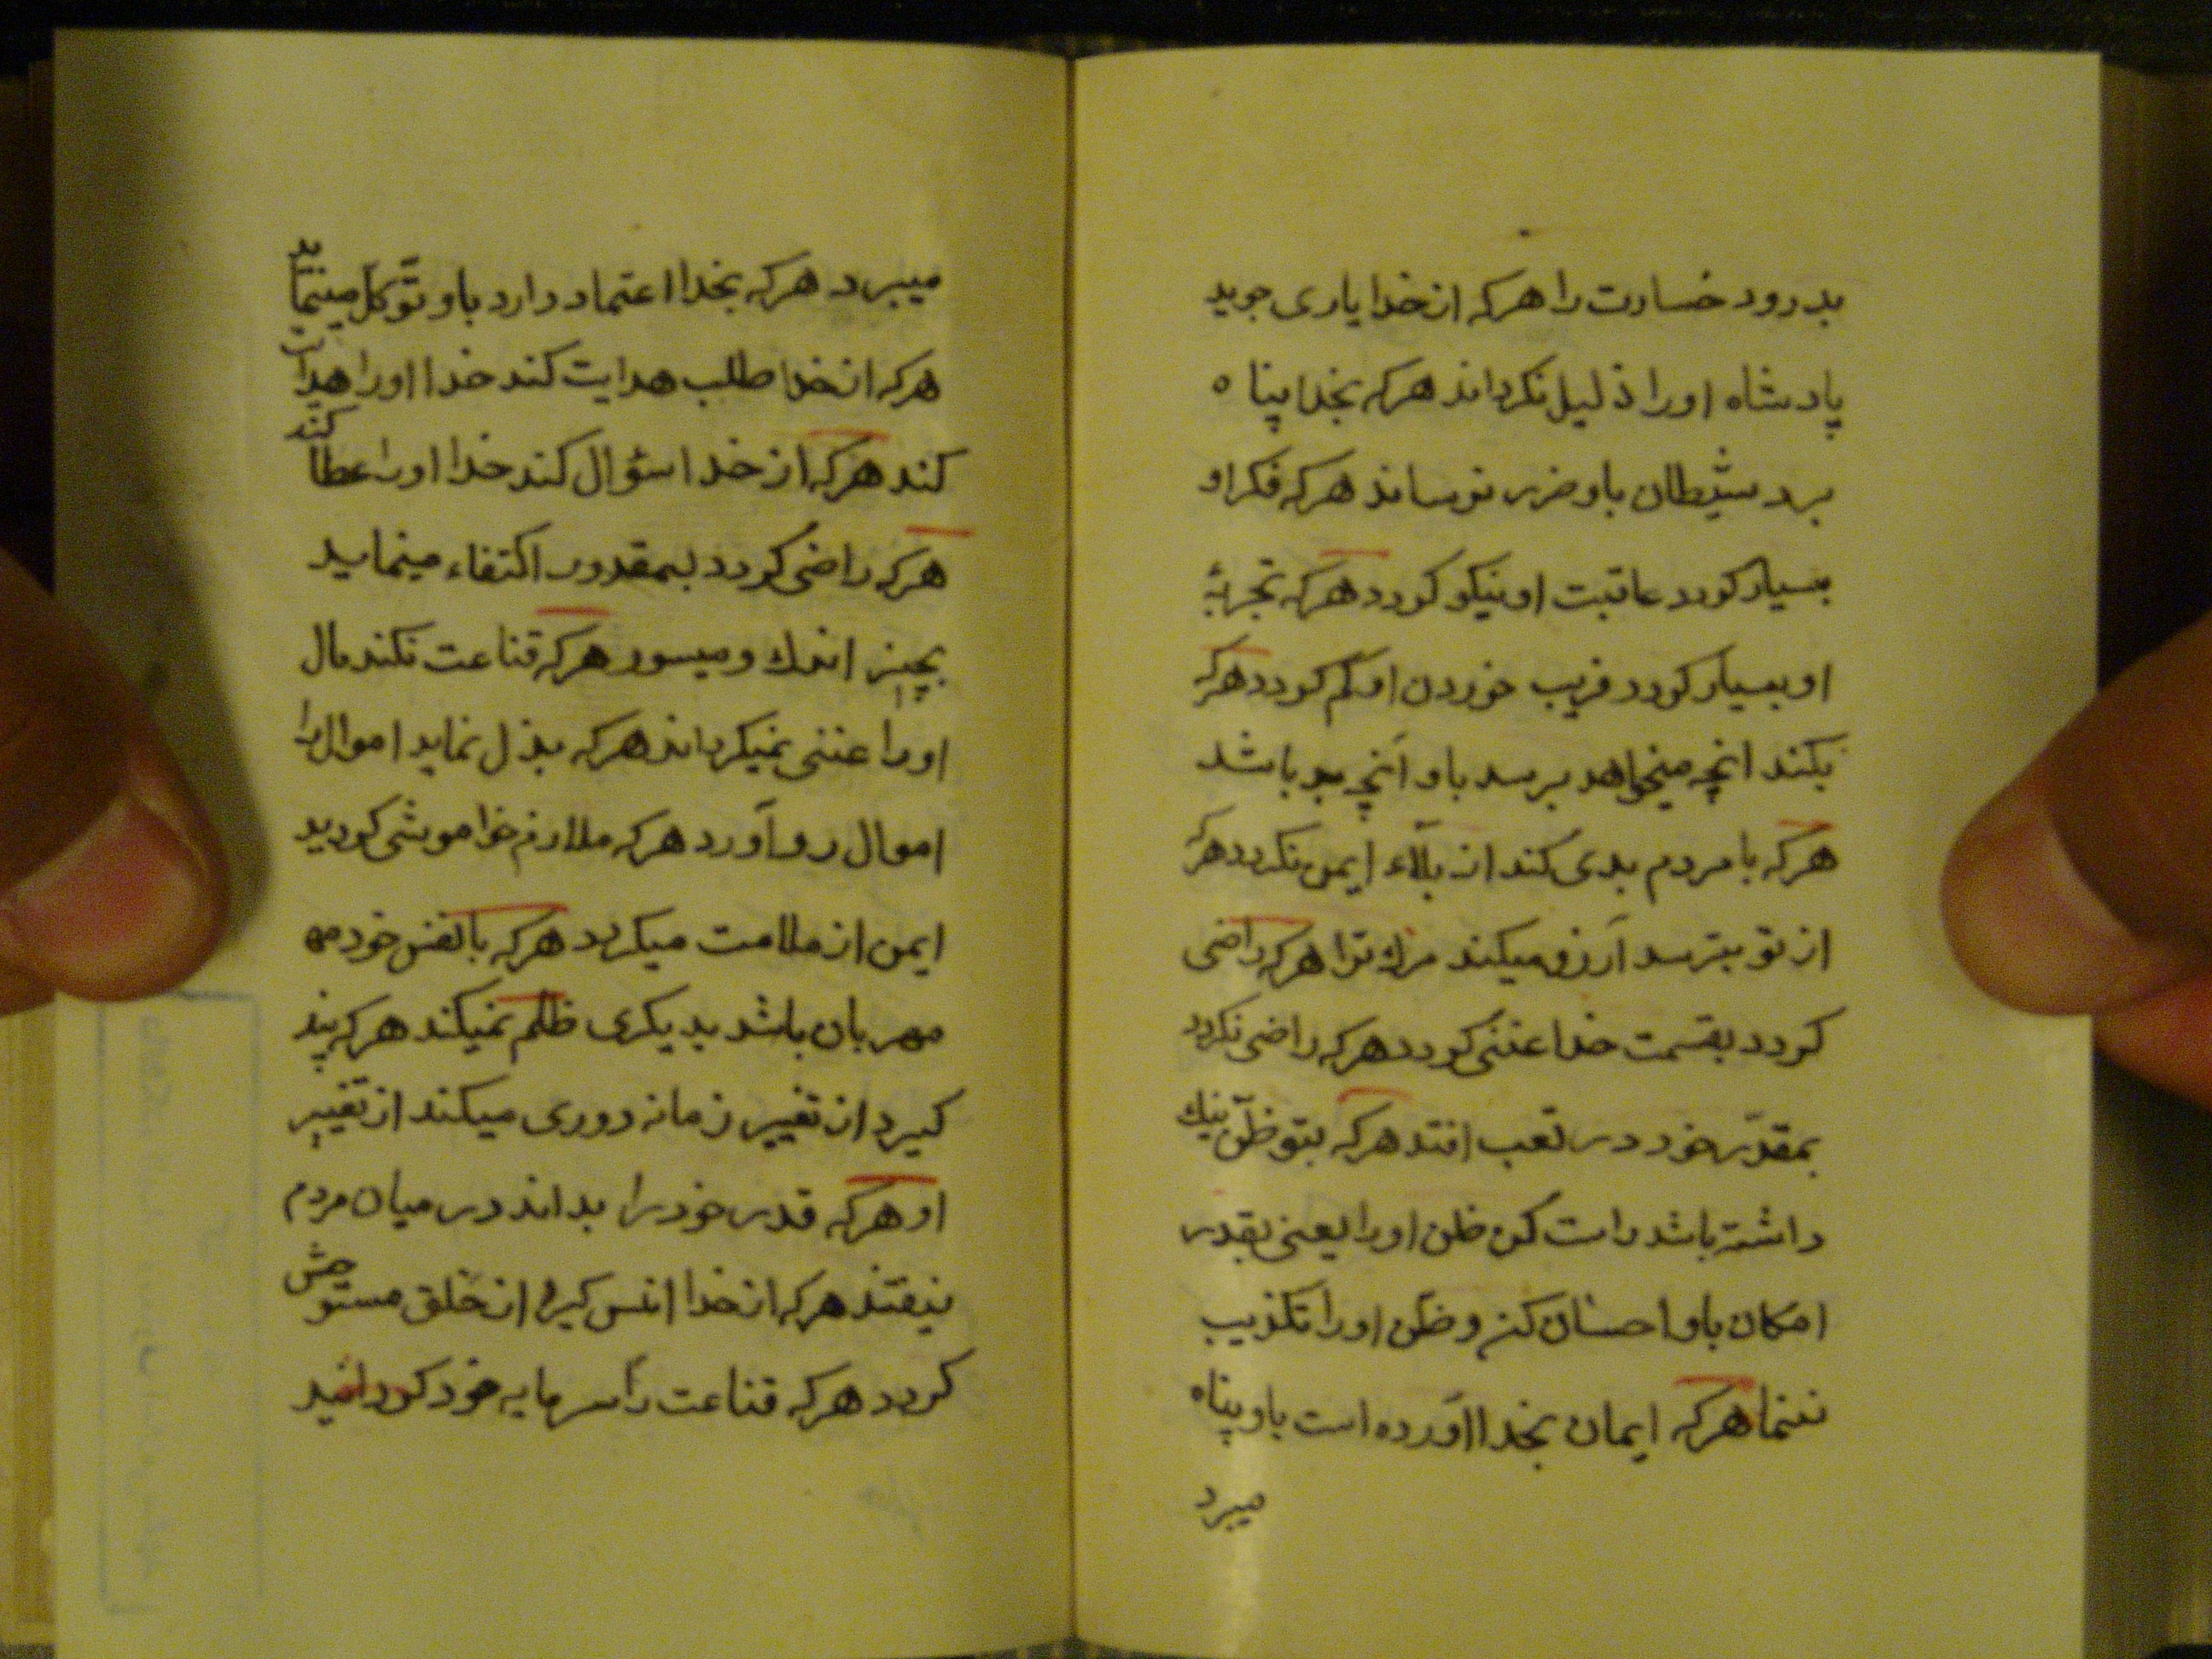 بدرود خسارت را هرکه از خدا یاری جوید
پادشاه او را ذلیل نکرداند هرکه بخدا پناه
برد شیطان باو ضرر نرساند هرکه فکر او
بسیار کردد عاقبت او نیکو کردد هرکه تجربهٔ
او بسیار کردد فریب خوردن او کم کردد هرکه
بکند انچه میخواهد برسد باو آنچه بد باشد
هرکه با مردم بدی کند از بلآء ایمن نکردد هرکه
از تو بترسد آرزو میکند مرك ترا هرکه راضی
کردد بقسمت خدا غننی کردد هرکه راضی نکردد
بمقدّر خود در تعب افتد هرکه بتو ظنّ نیك
داشته باشد راست کن ظن او را یعنی بقدر
امکان باو احسان کن و ظن او را تکذیب
ننما هرکه ایمان بخدا آورده است باو پناه
میبرد
میبرد هرکه بخدا اعتماد دارد باو توّکل مینماید
هرکه از خدا طلب هدایت کند خدا او را هدایت
کند هرکه از خدا سؤال کند خدا او را عطا کند
هرکه راضی کردد بمقدور اکتفاء مینماید
بچیز اندك و میسور هرکه قناعت نکند مال
او را غننی نمیکرداند هرکه بذل نماید اموال را
اموال رو آورد هرکه ملازم خواموشی کردید
ایمن از ملامت میکردد هرکه با نفس خود مه
مهربان باشد بدیکری ظلم نمیکند هرکه پند
کیرد از تغییر زمانه دوری میکند از تغییر
او هرکه قدر خود را بداند در میان مردم
نیفتند هرکه از خدا انس کیرد از خلق مستوحش
کردد هرکه قناعت رأسرمایه خود کردانید